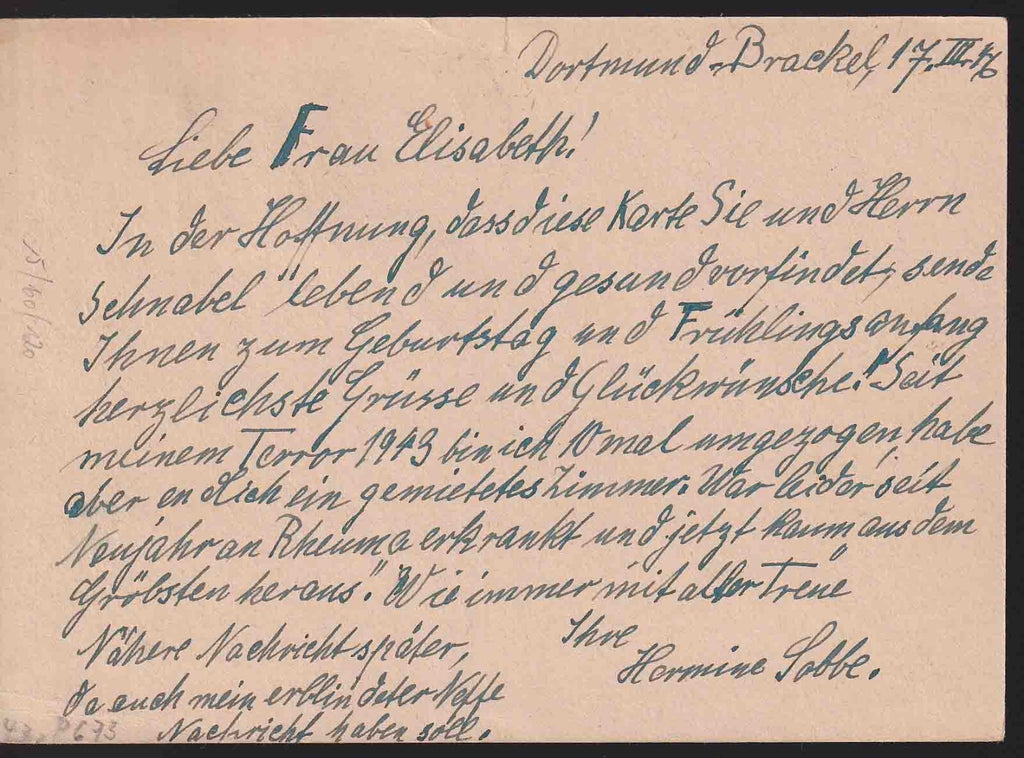 Dortmund-Brackel, 17. III. 46
Liebe Frau Elisabeth!
In der Hoffnung, dass diese Karte Sie und Herrn
Schnabel "lebend und gesund vorfindet, sende
Ihnen zum Geburtstag und Frühlingsanfang
herzlichste Grüsse und Glückwünsche!" Seit
meinem Terror 1943 bin ich 10 mal umgezogen, habe
aber endlich ein gemietetes Zimmer. War leider seit
Neujahr an Rheuma erkrankt und jetzt kaum "aus dem
Gröbsten heraus". Wie immer mit alter Treue
Ihre
Hermine Sobbe.
Nähere Nachricht später,
da auch mein erblindeter Neffe
Nachricht haben soll.
15/40/120